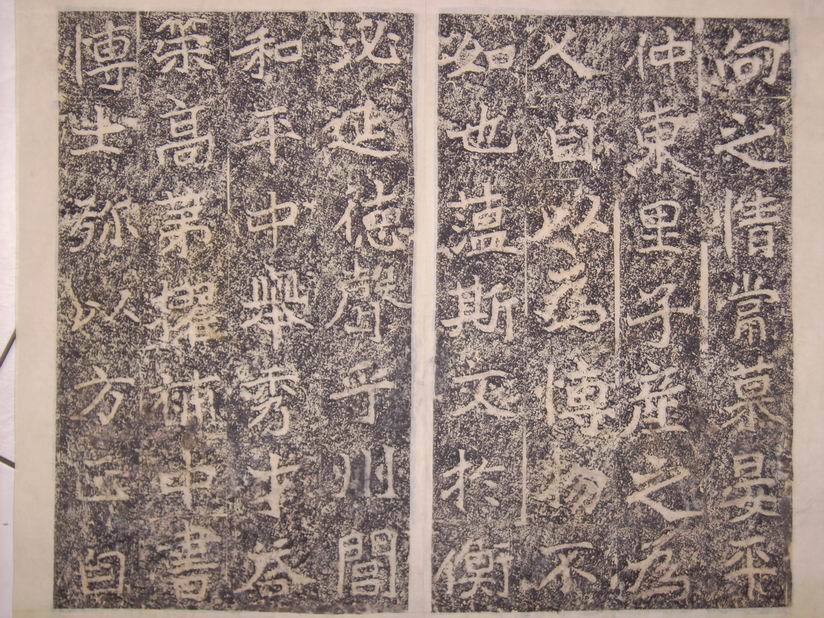 向之情常慕晏平
仲東里子產之為
人自以為博物不
如也蘊斯文於衡
泌延德聲乎州閭
和平中舉秀才荅
策高第擢補中書
博士弥以方正自